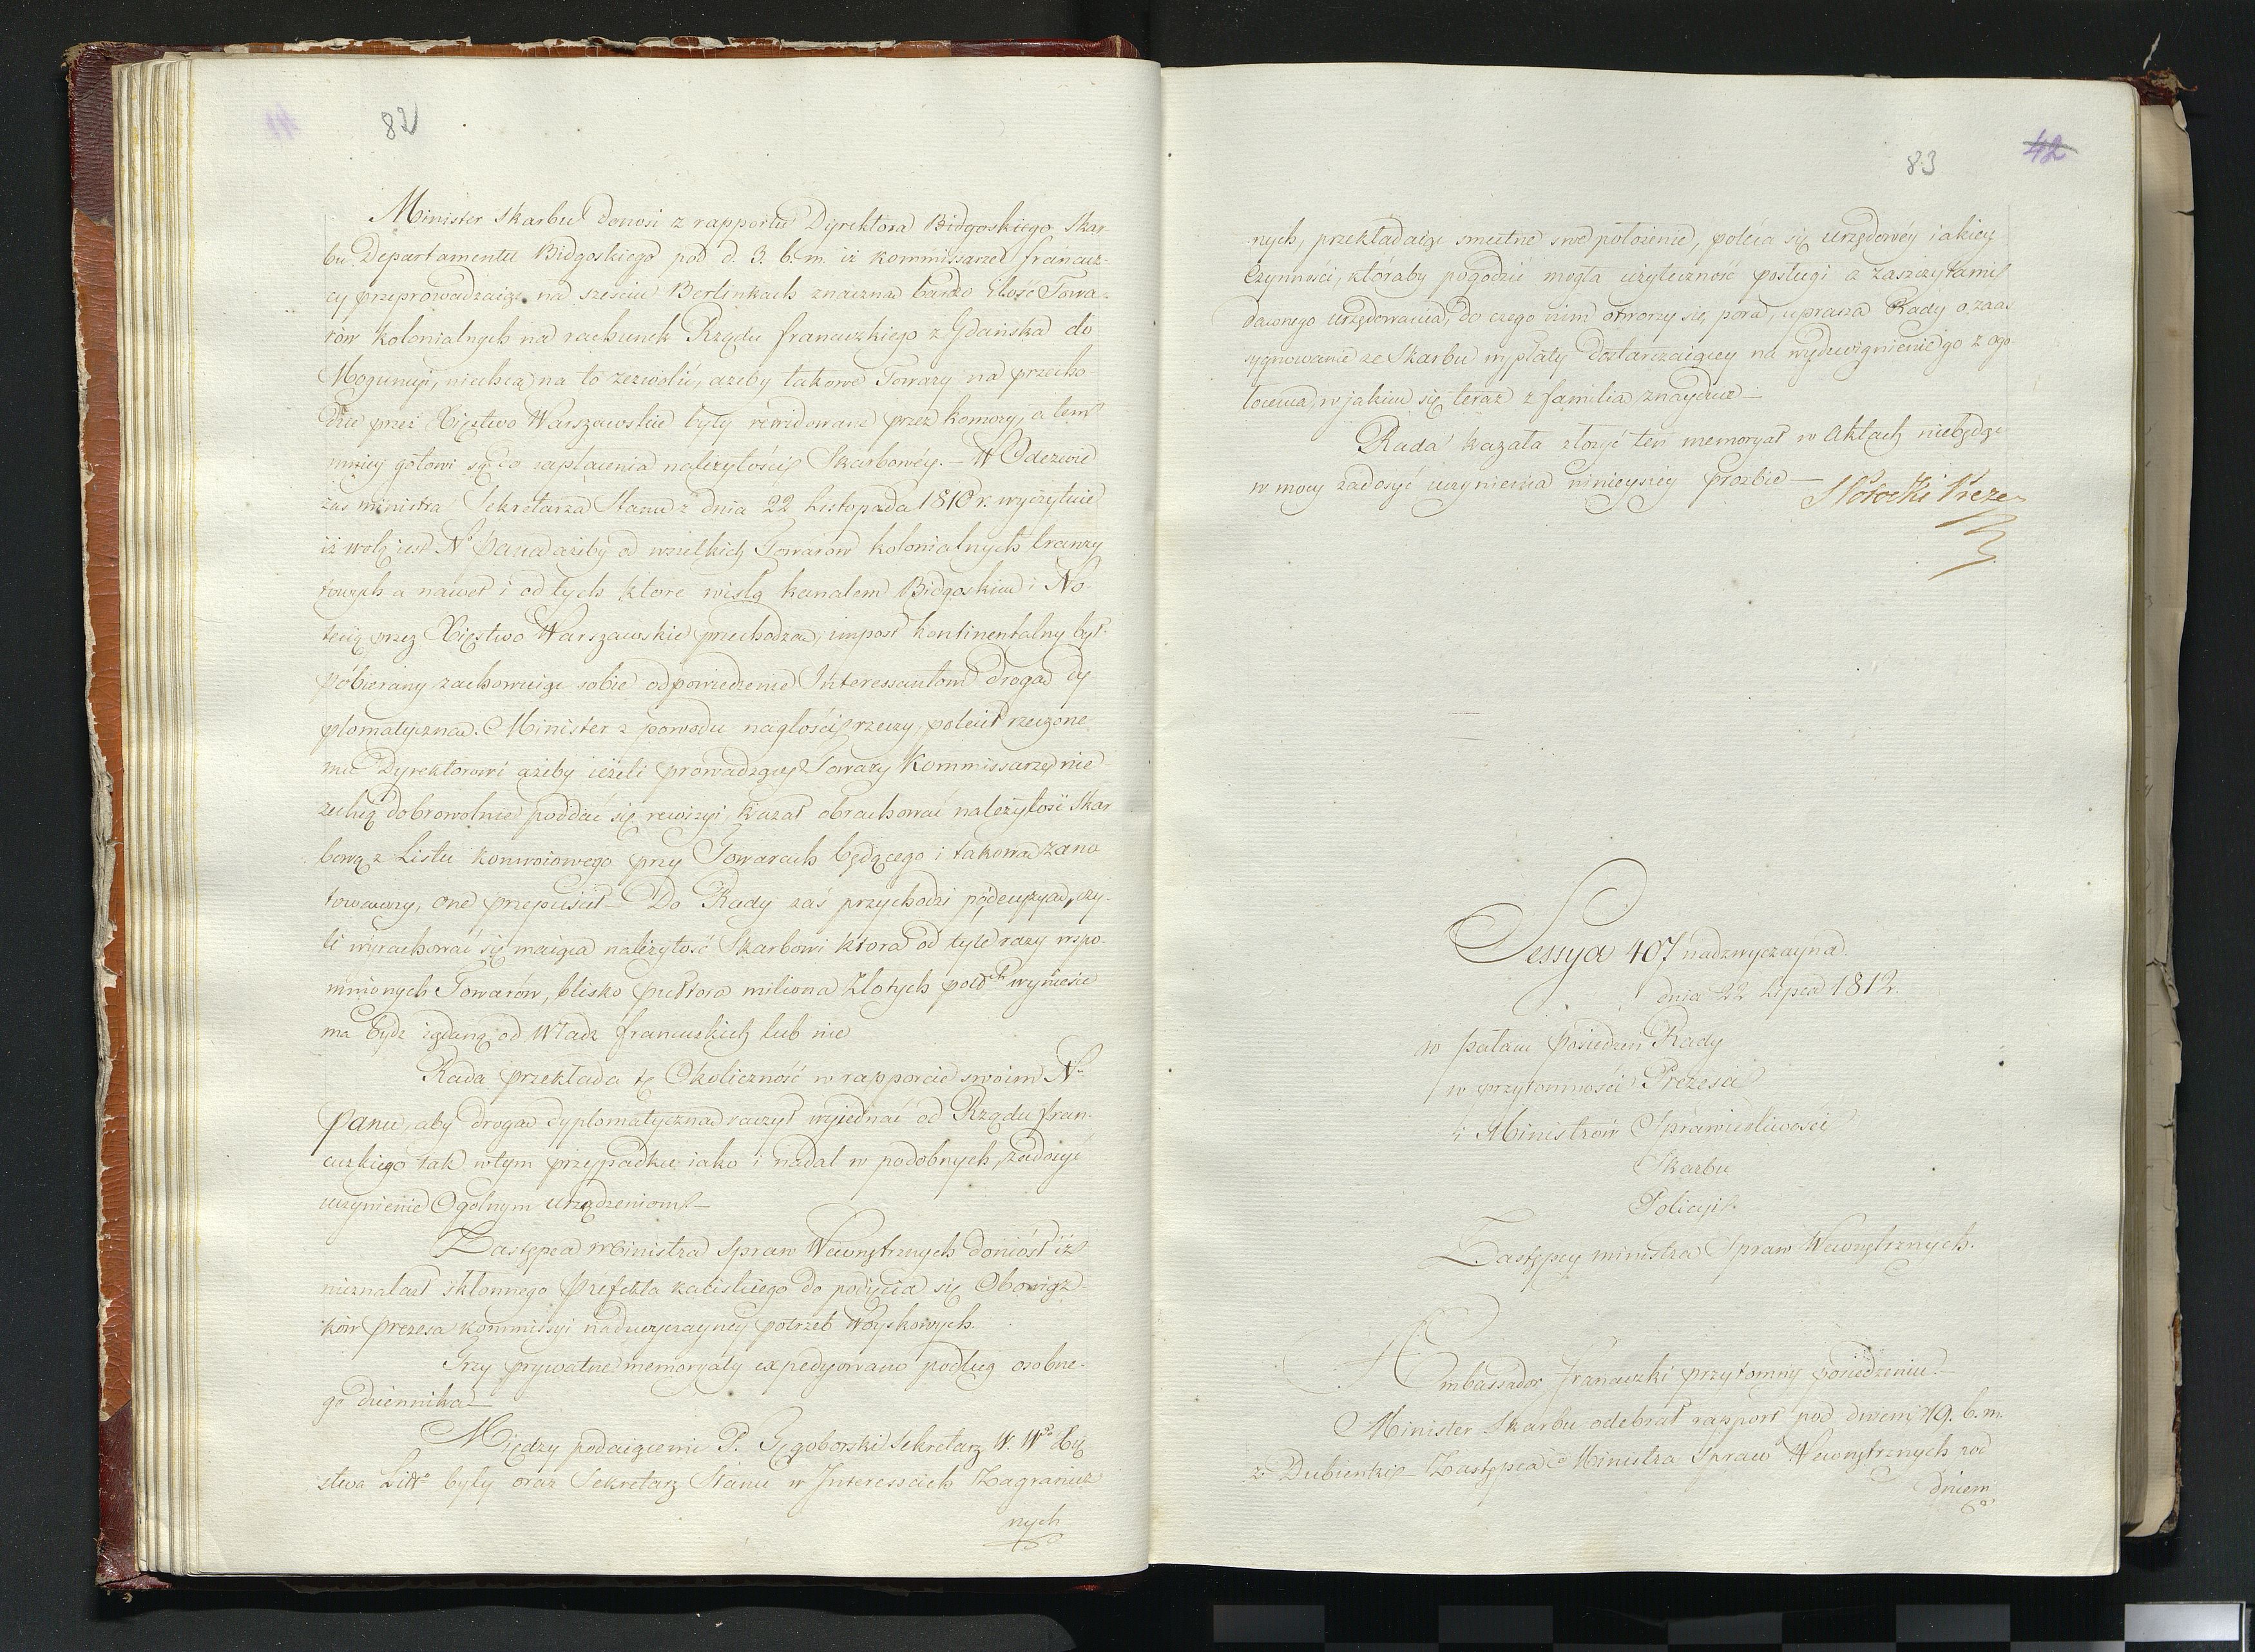 82
Minister Skarbu donosi z rapportu Dyrektora Bidgoskiego Skar-
bu Departamentu Bidgoskiego pod d. 3. b. m. iż kommissarze francuz-
cy przeprowadzaiąc na sześciu Berlinkach znaczna bardzo ilość Towa-
rów kolonialnych na rachunek Rządu francuzkiego z Gdańska do
Moguncyi, niechcą na to zezwolić, ażeby takowe Towary na przecho-
dzie przez Xięstwo Warszawskie były rewidowane przez komory, a tem
mniey gotowi są do zapłacenia należytości Skarbowéy. — W Odezwie
zas ministra Sekretarza Stanu z dnia 22 Listopada 1810 r. wyczytuie
iż wolą iest No Pana ażeby od wszelkich Towarow kolonialnych tranzy
towych a nawet i od tych ktore wisłą kanałem Bidgoskim i No
tecią przez Xięstwo Warszawskie przechodza, impost kontinentalny był
pobierany zachowuiąc sobie odpowiedzenie Interessantom droga dy
plomatyczna. Minister z powodu nagłości rzeczy, polecił rzeczone
mu Dyrektorowi ażeby ieżeli prowadzący Towary Kommissarze nie
zechcą dobrowolnie poddać się rewizyi, kazał obrachować należytość Skar
bową z Listu konwoiowego przy Towarach będącego i takowa zano
towawszy, one przepuścił — Do Rady zaś przychodzi po decyzya, czy-
li wyrachować się maiąca należytość Skarbowi ktora od tyle razy wspo-
mnionych Towarów, blisko pułtora miliona Złotych polch wyniesie
ma bydz żądaną od Władz francuskich lub nie
Rada przekłada tę Okoliczność w rapporcie swoim No
Panu, aby droga dyplomatyczna raczył wyiednać od Rządu fran-
cuzkiego tak w tym przypadku iako i nadal w podobnych, zadosyć
uczynienie Ogólnym urządzeniom —
Zastępca Ministra Spraw Wewnętrznych doniósł iż
nieznalazł skłonnego Prefekta kaliskiego do podięcia się Obowiąz-
ków Prezesa kommissyi nadzwyczayney potrzeb Woyskowych.
Trzy prywatne memoryały expedyowano podług osobne-
go dziennika —
Między podaiącemi P. Sekretarz W. Wo Xię
stwa Litto były oraz Sekretarz Stanu w Interessach Zagranicz
nych
42
83
nych, przekładaiąc smutne swe położenie, poleca się urzędowéy iakiey
Czynności, któraby pogodzić mogła użyteczność posługi a zaszczytami
dawnego urzędowania, do czego nim otworzy się pora, uprasza Rady o zaas
sygnowanie ze Skarbu wypłaty dostarczaiącey na wydzwignienie go z ogo
łocenia, w jakim się teraz z familia znayduie —
Rada kazała złożyć ten memoryał w Aktach niebędąc
w mocy zadosyć uczynienia ninieyszéy prozbie —
Potocki Prezes
Sessya 407 nadzwyczayna
dnia 22 Lipca 1812.
w pałacu posiedzeń Rady
w przytomności Prezesa
i Ministrów Sprawiedliwości
Skarbu
Policyi
Zastępcy ministra Spraw Wewnętrznych.
Ambassador Francuzki przytomny posiedzeniu. —
Minister Skarbu odebrał rapport pod dniem 19. b. m.
z Dubienki — Zastępca Ministra Spraw Wewnętrznych pod
dniem